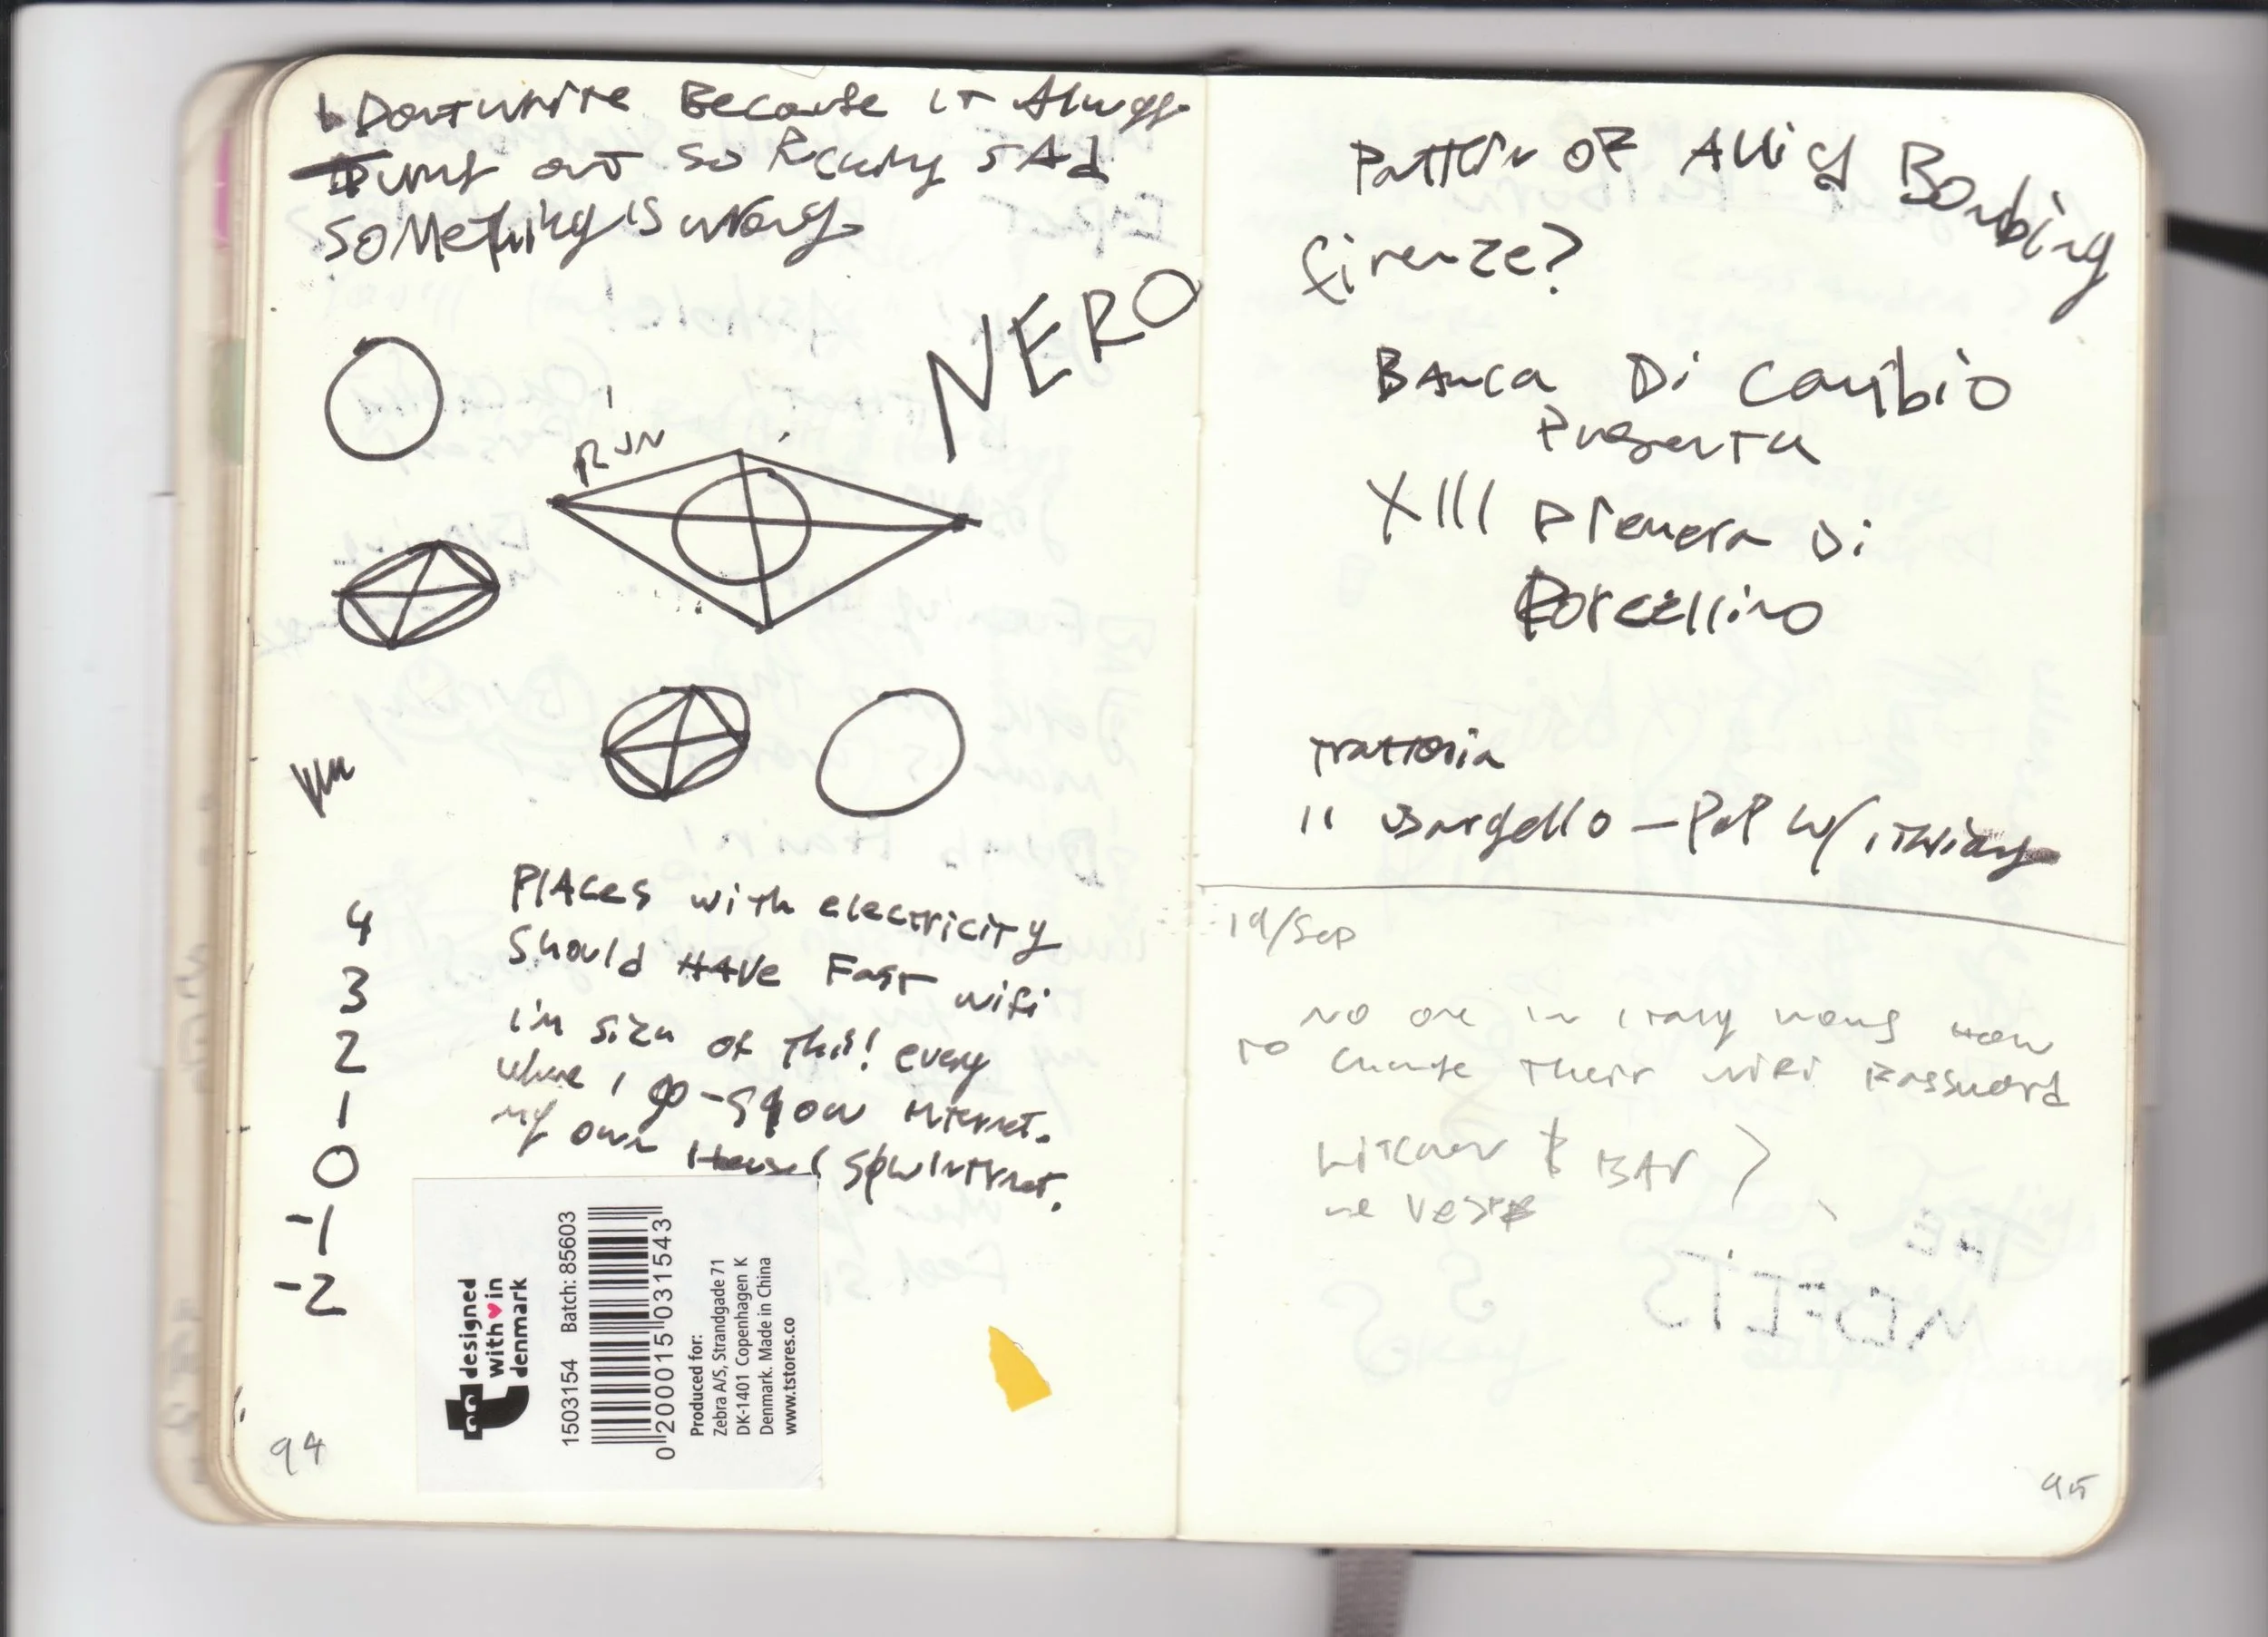 I Dont write Because it Always
Turns out so Fucking SAd
SOMething is wrong.
NERO
RUN
4
3
2
1
0
-1
-2
PlAces with electricity
Should HAVe Fast wifi
i'm sick of this! every
where i go - slow internet.
my own House! slow internet.
designed
with ♥ in
denmark
1503154 Batch: 85603
0 200015 031543
Produced for:
Zebra A/S, Strandgade 71
DK-1401 Copenhagen K
Denmark. Made in China
www.tstores.co
94
Pattern OF Allied Bombing
firenze?
BAnca Di Cambio
Presenta
XIII Di
Porcellino
Trattoria
Il Bargello - PoP w/
19/Sep
No one in italy knows How
to change their wifi Password
Kitchen & BAr
95